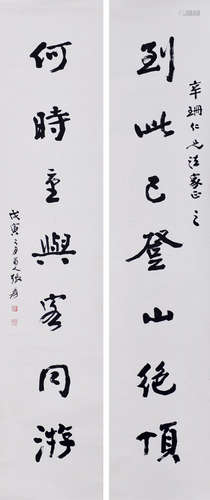 到此已登山絕頂
辛珊仁兄法家正之
何時重與客同游
戊寅之方大千張爰